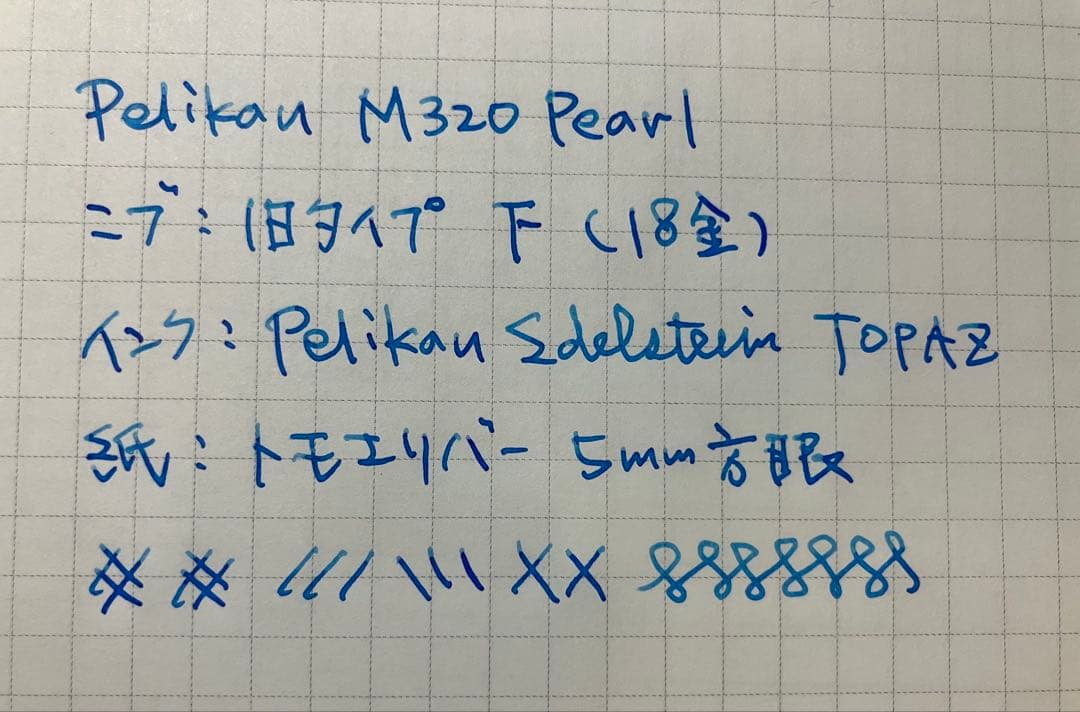 Pelikan M320 Pearl
ニブ：旧タイプ F（18金）
インク：Pelikan Edelstein TOPAZ
紙：トモエリバー 5mm方眼